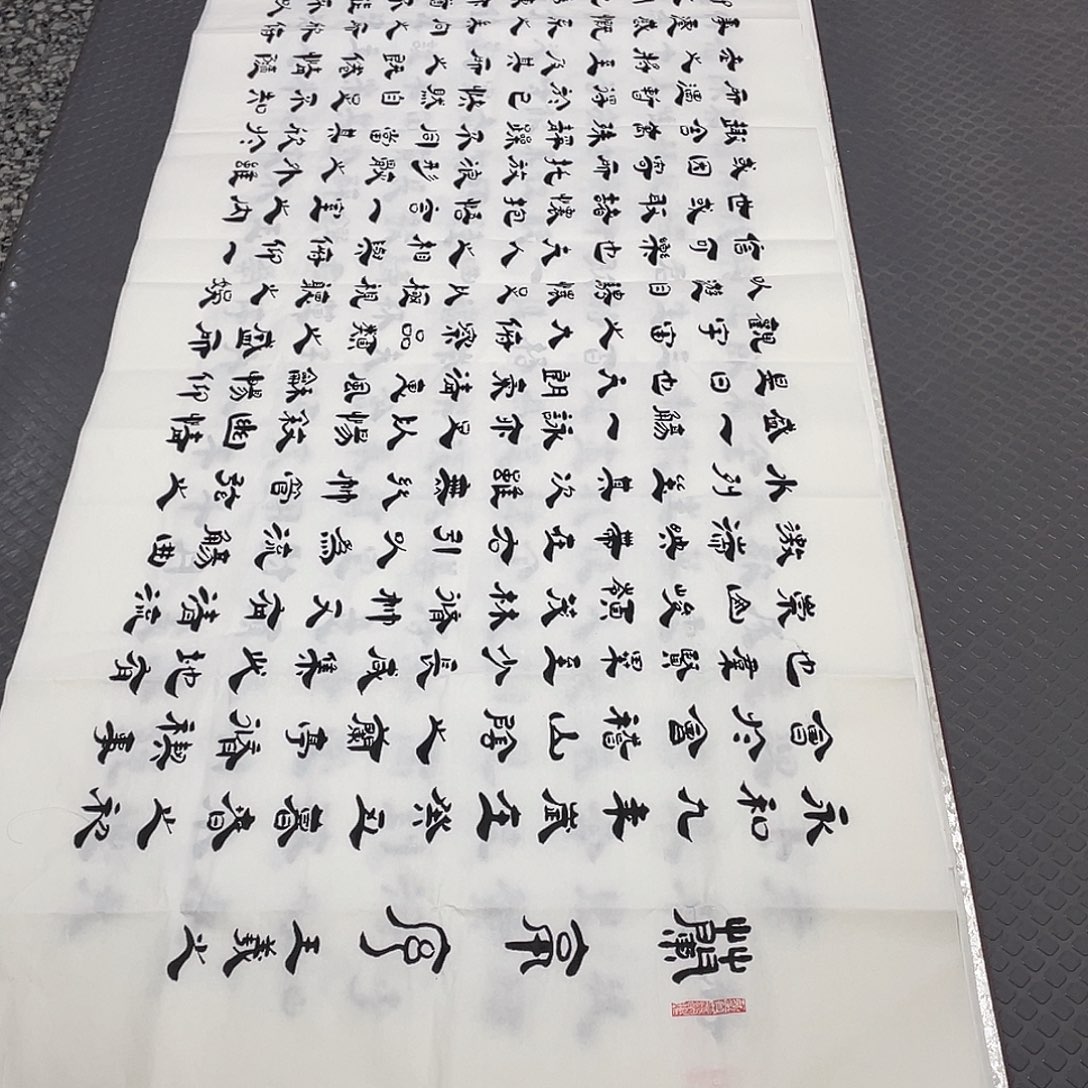 蘭亭序
王羲之
永和九年歲在癸丑暮春之初
會於會稽山陰之蘭亭脩禊事
也羣賢畢至少長咸集此地有
崇山峻領茂林脩竹又有清流
激湍映帶左右引以為流觴曲
水列坐其次雖無絲竹管弦之
盛一觴一詠亦足以暢敘幽情
是日也天朗氣清惠風和暢仰
觀宇宙之大俯察品類之盛所
以遊目騁懷足以極視聽之娛
信可樂也夫人之相與俯仰一
世或取諸懷抱悟言一室之內
或因寄所託放浪形骸之外雖
趣舍萬殊靜躁不同當其欣於
所遇暫得於己快然自足不知
老之將至及其所之既惓情隨